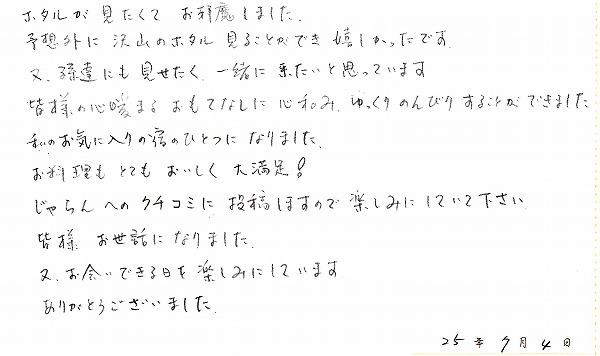 ホタルが見たくて お邪魔しました.
予想外に沢山のホタル見ることができ嬉しかったです.
又、孫達にも見せたく、一緒に来たいと思っています
皆様の心暖まるおもてなしに心和み、ゆっくりのんびりすることができました
私のお気に入りの宿のひとつになりました.
お料理もとてもおいしく大満足!
じゃらんへのクチコミに投稿しますので楽しみにしていて下さい.
皆様 お世話になりました.
又、お会いできる日を楽しみにしています
ありがとうございました.
25年7月4日